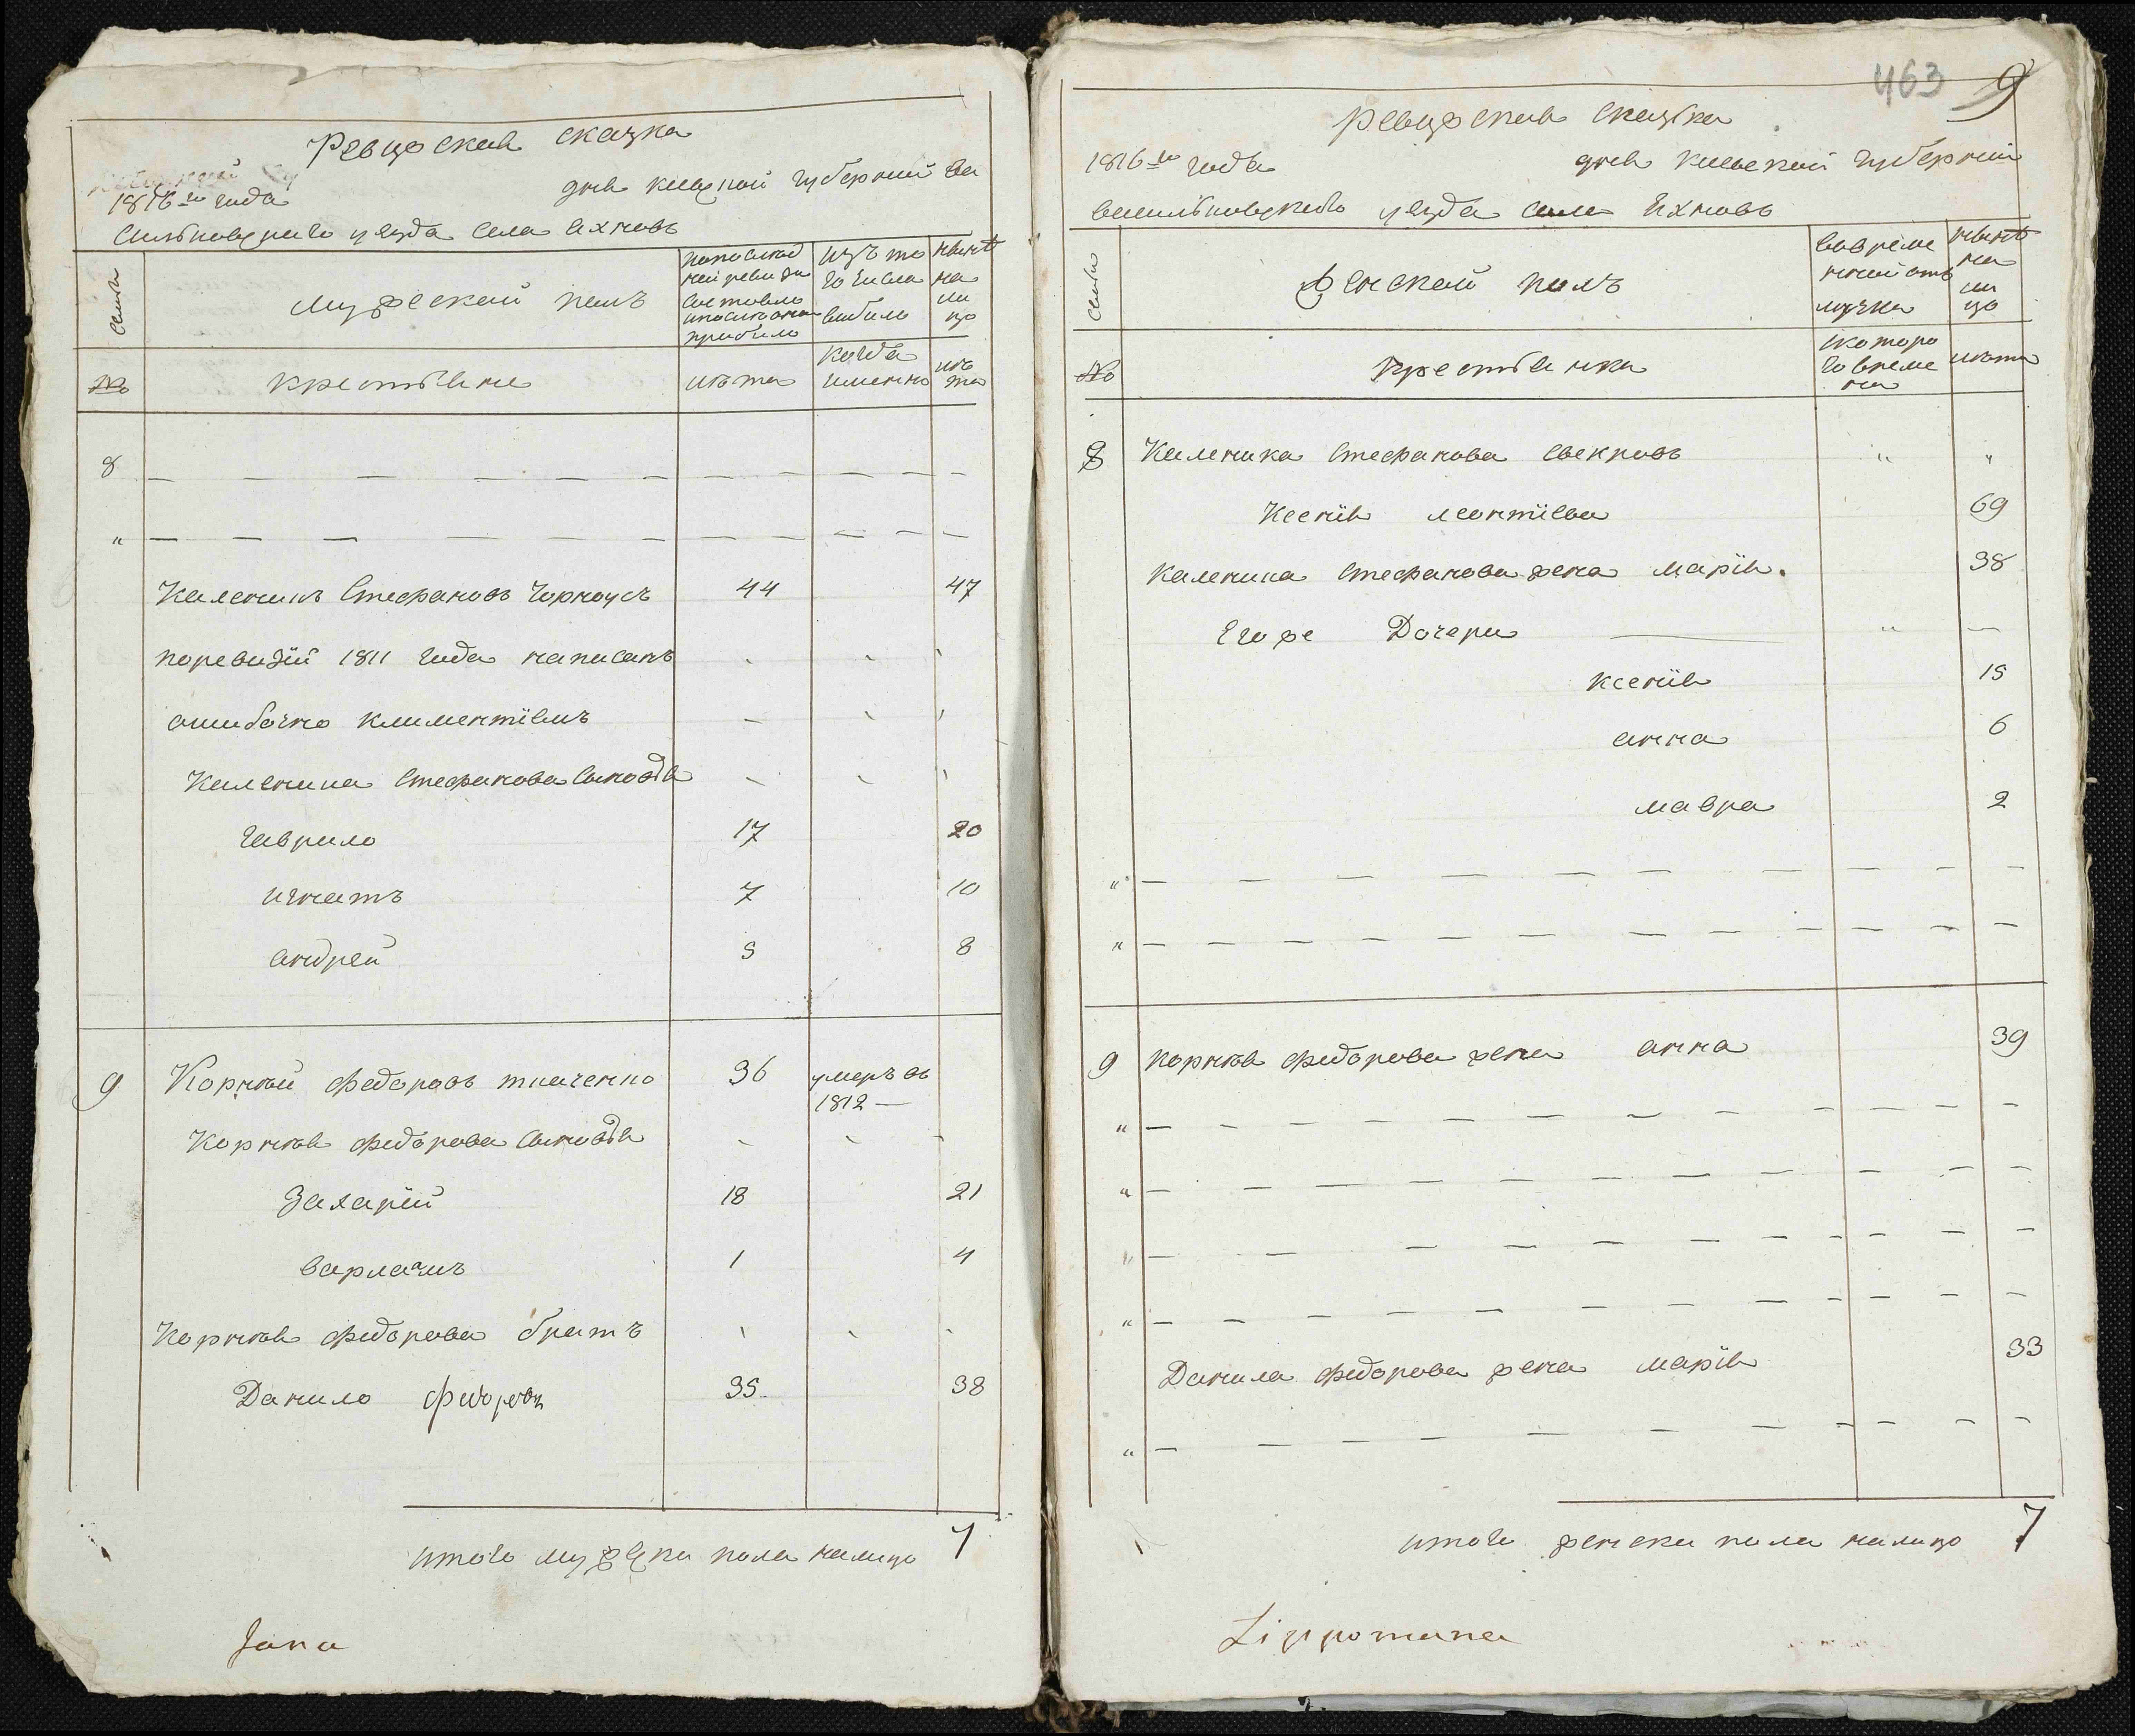 Ревизская сказка
1816го года
дня киевской губернии ва
сильковского уезда села Яхновъ
семьи
мужеской полъ
попослед
ней ревизии
состояло
и после оной
прибыло
изъ то
го числа
выбыло
ныне
на
ли
цо
№
крестьяне
лета
когда
именно
ле
та
8 — — — — — — — — — — —
" — — — — — — — — — — —
Каленикъ Стефановъ Чорноусъ 44 47
поревизіи 1811 года написанъ
ошибочно климентіемъ
Каленика Стефанова сыновья
Гаврило 17 20
игнатъ 7 10
андрей 5 8
9 Корней федоровъ ткаченко 36 умеръ въ 1812 —
Корнея федорова сыновья
Захарій 18 21
варлаамъ 1 4
Корнея федорова братъ
Данило федоровъ 35 38
итого мужеска пола налицо 7
Jana
463 9
Ревизская сказка
1816го года дня киевской губернии
васильковского уезда села Яхновъ
семьи
женской полъ
вовреме
нной от
лучке
ныне
на
ли
цо
№
крестьянка
скоторо
го време
ни
лета
8 Каленика Стефанова свекровь " "
Ксенія леонтіева 69
Каленика Стефанова жена марія. 38
Егоже Дочери — " —
ксенія 15
анна 6
мавра 2
" — — — — — — — — — — —
" — — — — — — — — — — —
9 корнея федорова жена анна 39
" — — — — — — — — — — —
" — — — — — — — — — — —
" — — — — — — — — — — —
" — — — — — — — — — — —
Данила федорова жена марія 33
" — — — — — — — — — —
итого женска пола налицо 7
Lippomana